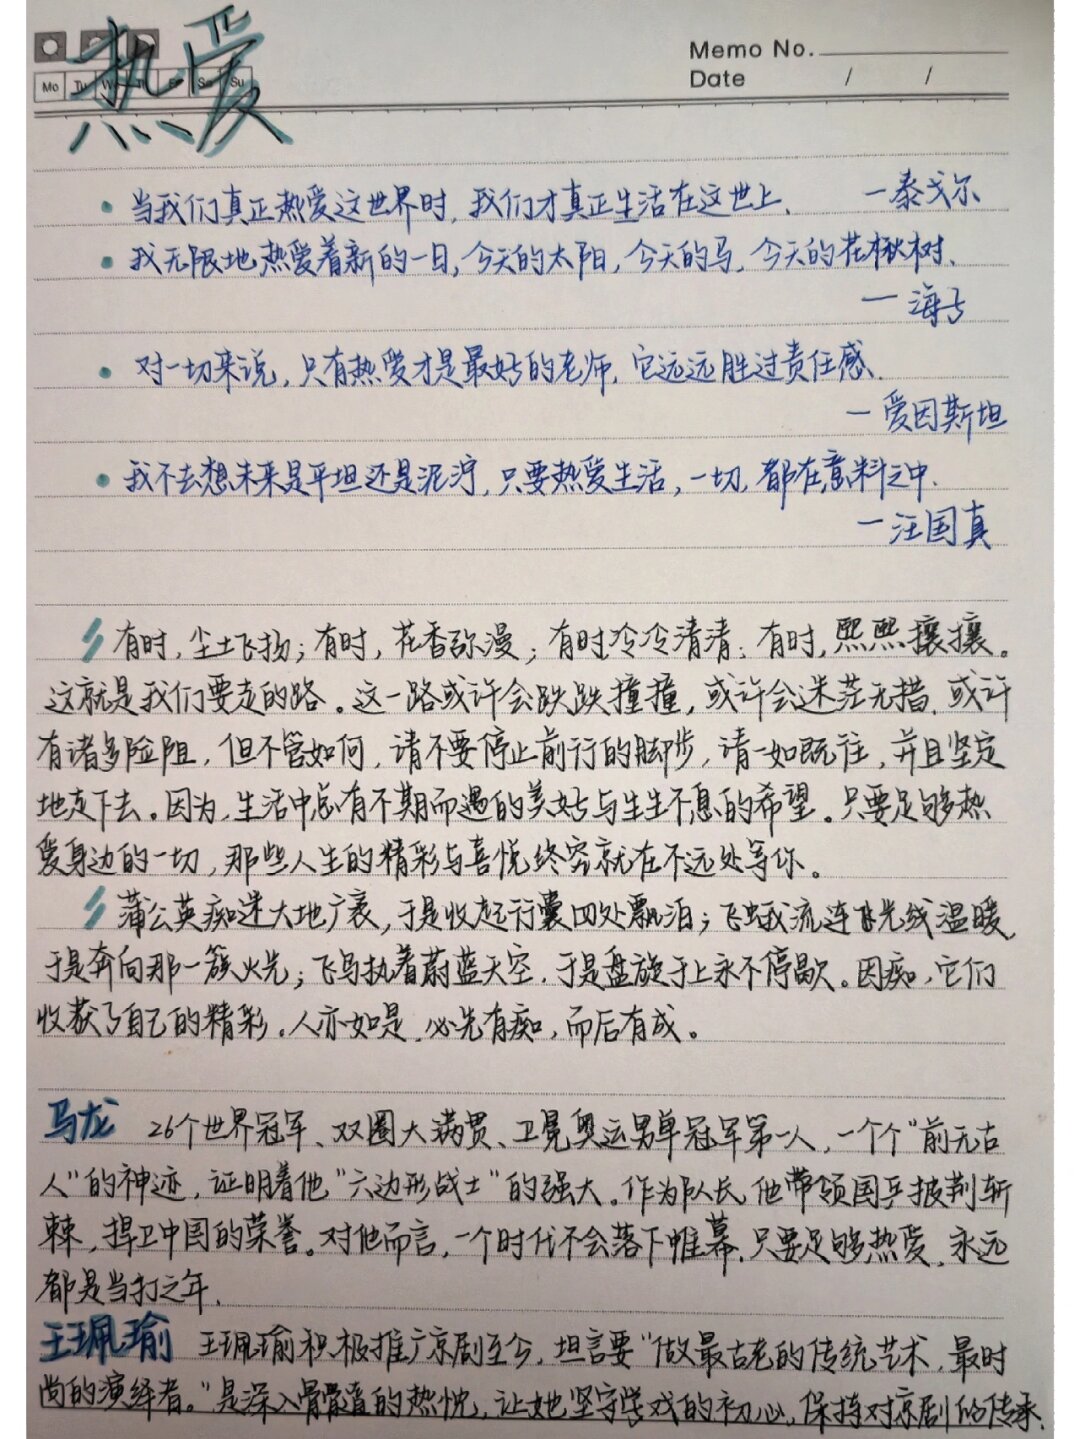 热爱
Memo No.
Mo Tu We Su
Date / /
• 当我们真正热爱这世界时,我们才真正生活在这世上. —泰戈尔
• 我无限地热爱着新的一日,今天的太阳,今天的马,今天的花楸树.
—海子
• 对一切来说,只有热爱才是最好的老师,它远远胜过责任感.
—爱因斯坦
• 我不去想未来是平坦还是泥泞,只要热爱生活,一切,都在意料之中.
—汪国真
有时,尘土飞扬;有时,花香弥漫;有时冷冷清清;有时,熙熙攘攘。
这就是我们要走的路。这一路或许会跌跌撞撞,或许会迷茫无措,或许
有诸多险阻,但不管如何,请不要停止前行的脚步,请一如既往,并且坚定
地走下去。因为,生活中总有不期而遇的美好与生生不息的希望。只要足够热
爱身边的一切,那些人生的精彩与喜悦终究就在不远处等你。
蒲公英痴迷大地广袤,于是收起行囊四处飘泊;飞蛾流连光线温暖,
于是奔向那一簇火光;飞鸟执着蔚蓝天空,于是盘旋于上永不停歇。因痴,它们
收获了自己的精彩。人亦如是,必先有痴,而后有成。
马龙 26个世界冠军、双圈大满贯、卫冕奥运男单冠军第一人,一个个"前无古
人"的神迹,证明着他"六边形战士"的强大。作为队长,他带领国乒披荆斩
棘,捍卫中国的荣誉。对他而言,一个时代不会落下帷幕,只要足够热爱,永远
都是当打之年.
王珮瑜 王珮瑜积极推广京剧至今,坦言要"做最古老的传统艺术,最时
尚的演绎者。"是深入骨髓的热忱,让她坚守学戏的初心,保持对京剧的传承.